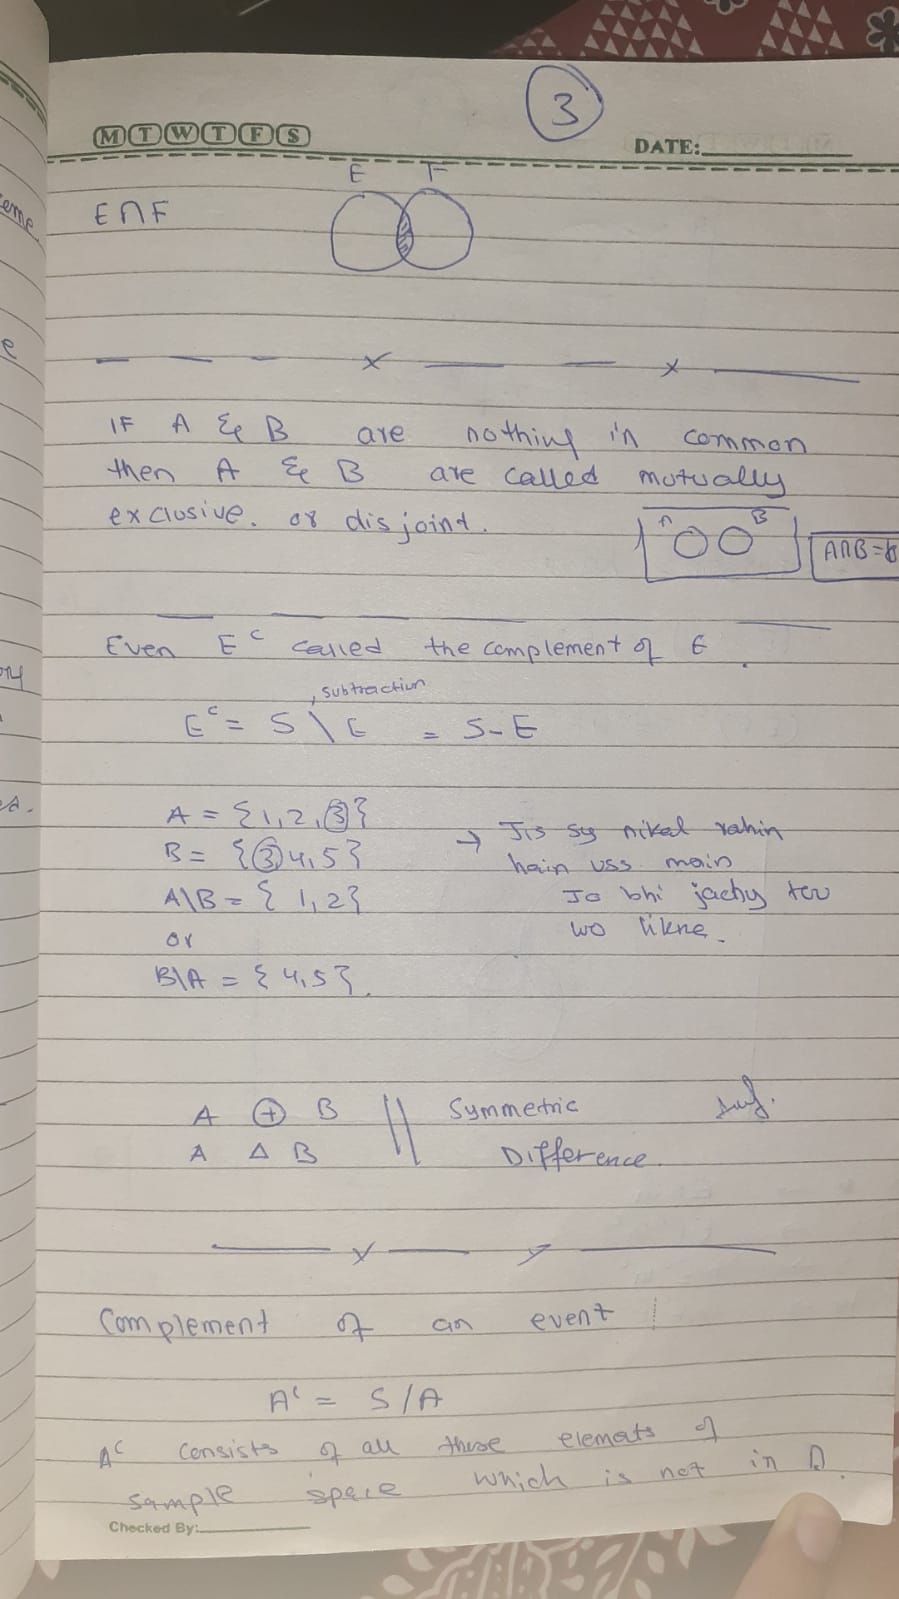 3
M T W T F S
DATE:
E F
E∩F
IF A & B are nothing in common
then A & B are called mutually
exclusive. or disjoint.
A B
A∩B =
Even E^c called the complement of E.
subtraction
E^c = S \ E = S-E
A = {1,2,3}
B = {3 4,5}
A\B = { 1,2}
or
B\A = { 4,5}.
→ Jis sy nikal rahin
hain uss main
Jo bhi jachy tou
wo likne.
A ⊕ B || Symmetric
A Δ B Difference.
Complement of an event
A^c = S/A
A^c consists of all those elemats of
sample space which is not in A.
Checked By:
eme
e